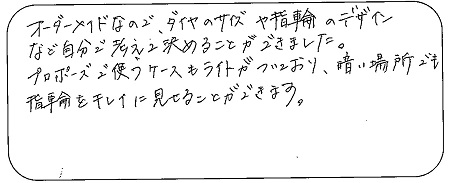 オーダーメイドなので、ダイヤのサイズや指輪のデザイン
など自分で考えて決めることができました。
プロポーズで使うケースもライトがついており、暗い場所でも
指輪をキレイに見せることができます。